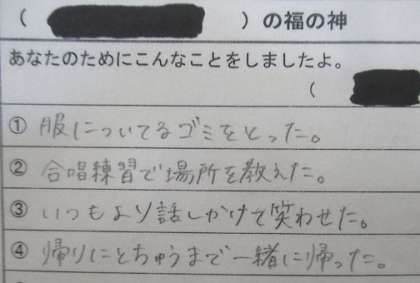 ( )の福の神
あなたのためにこんなことをしましたよ。
(
① 服についてるゴミをとった。
② 合唱練習で場所を教えた。
③ いつもより話しかけて笑わせた。
④ 帰りにとちゅうまで一緒に帰った。